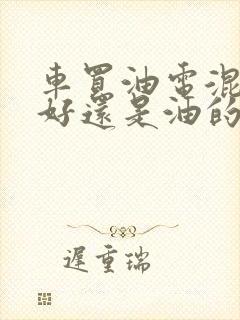 車買油電混
好還是油的
遲重瑞